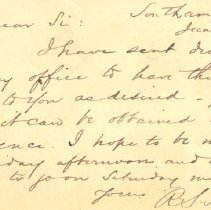 Southam
ear Sir: June
I have sent dr
y office to have th
to you as desired -
it can be obtained
ence. I hope to be
day afternoon, and
to go on Saturday m
Yours R.S.